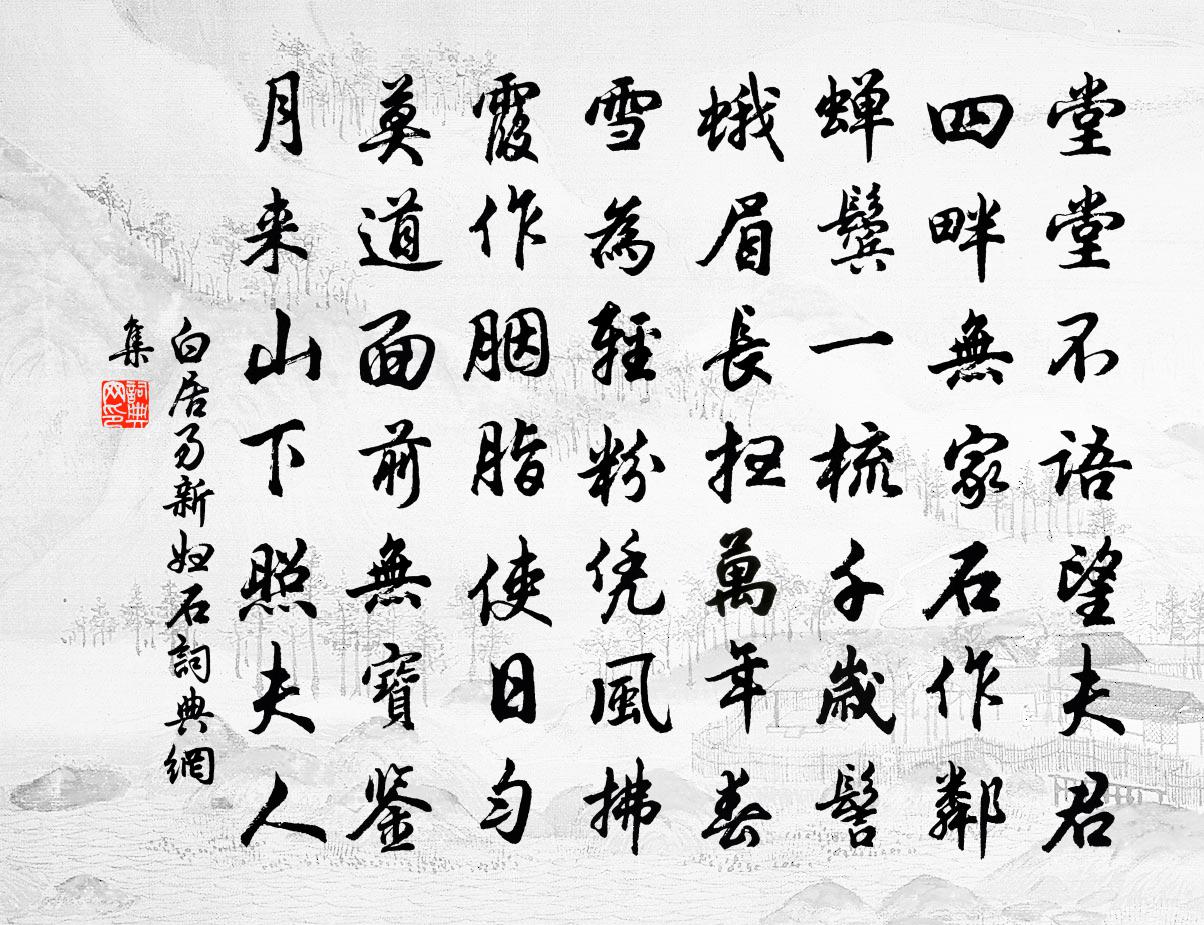 堂堂不語望夫君
四畔無家石作鄰
蝉鬢一梳千歲髻
蛾眉長扫萬年春
雪為輕粉凭風拂
霞作胭脂使日匀
莫道面前無寶鉴
月来山下照夫人
白居易新妇石詞典網
集
詞典網印